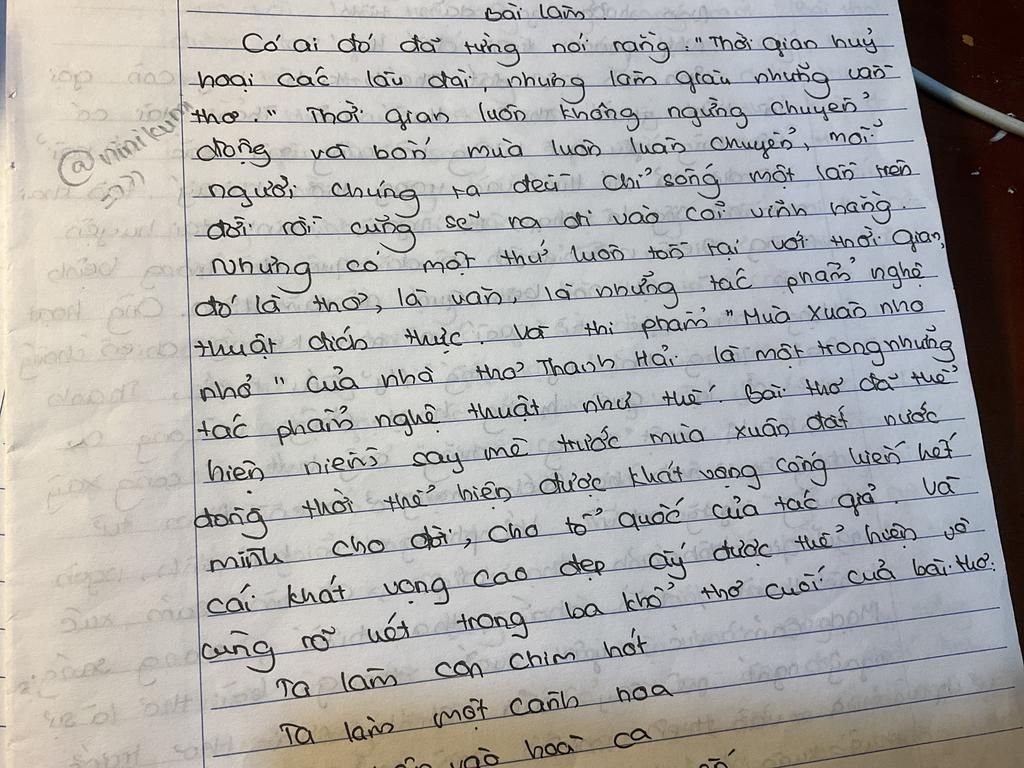 Bài làm
Có ai đó đã từng nói rằng: "Thời gian huỷ
hoại các lâu đài, nhưng làm giàu những vần
thơ." Thời gian luôn không ngừng chuyển
động và bốn mùa luôn luân chuyển, mỗi
người chúng ta đều chỉ sống một lần trên
đời rồi cũng sẽ ra đi vào cõi vĩnh hằng.
Nhưng có một thứ luôn tồn tại với thời gian,
đó là thơ, là văn, là những tác phẩm nghệ
thuật đích thực. Và thi phẩm "Mùa xuân nho
nhỏ" của nhà thơ Thanh Hải là một trong những
tác phẩm nghệ thuật như thế. Bài thơ đã thể
hiện niềm say mê trước mùa xuân đất nước
đồng thời thể hiện được khát vọng cống hiến hết
mình cho đời, cho tổ quốc của tác giả. Và
cái khát vọng cao đẹp ấy được thể hiện vô
cùng rõ nét trong ba khổ thơ cuối của bài thơ:
Ta làm con chim hót
Ta làm một cành hoa
vào hoà ca